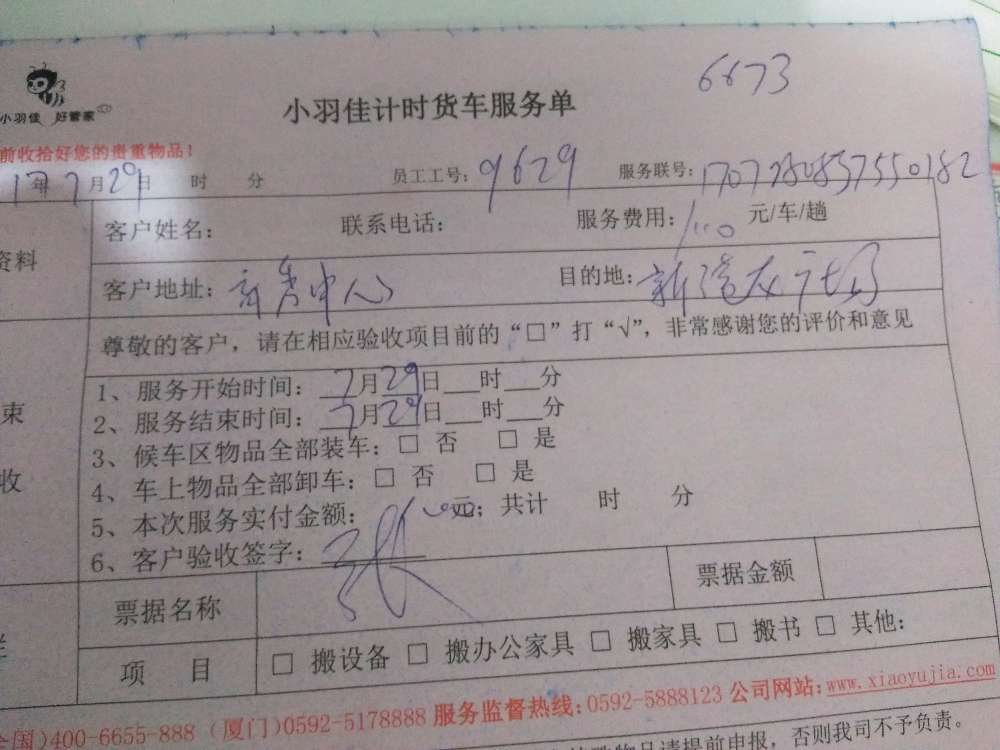 6673
小羽佳 好管家
小羽佳计时货车服务单
前收拾好您的贵重物品!
17年7月29日 时 分 员工工号: 9629 服务联号: 1707280857550182
客户姓名: 联系电话: 服务费用: 元/车/趟
资料
客户地址: 中心 目的地: 新
尊敬的客户，请在相应验收项目前的“□”打“√”，非常感谢您的评价和意见
1、服务开始时间: 7月29日___时___分
2、服务结束时间: 7月29日___时___分
束
3、候车区物品全部装车: □ 否 □ 是
收
4、车上物品全部卸车: □ 否 □ 是
5、本次服务实付金额: 元; 共计 时 分
6、客户验收签字:
票据名称 票据金额
项 目 □ 搬设备 □ 搬办公家具 □ 搬家具 □ 搬书 □ 其他:
国)400-6655-888 (厦门)0592-5178888 服务监督热线:0592-5888123 公司网站:www.xiaoyujia.com
物品请提前申报，否则我司不予负责。